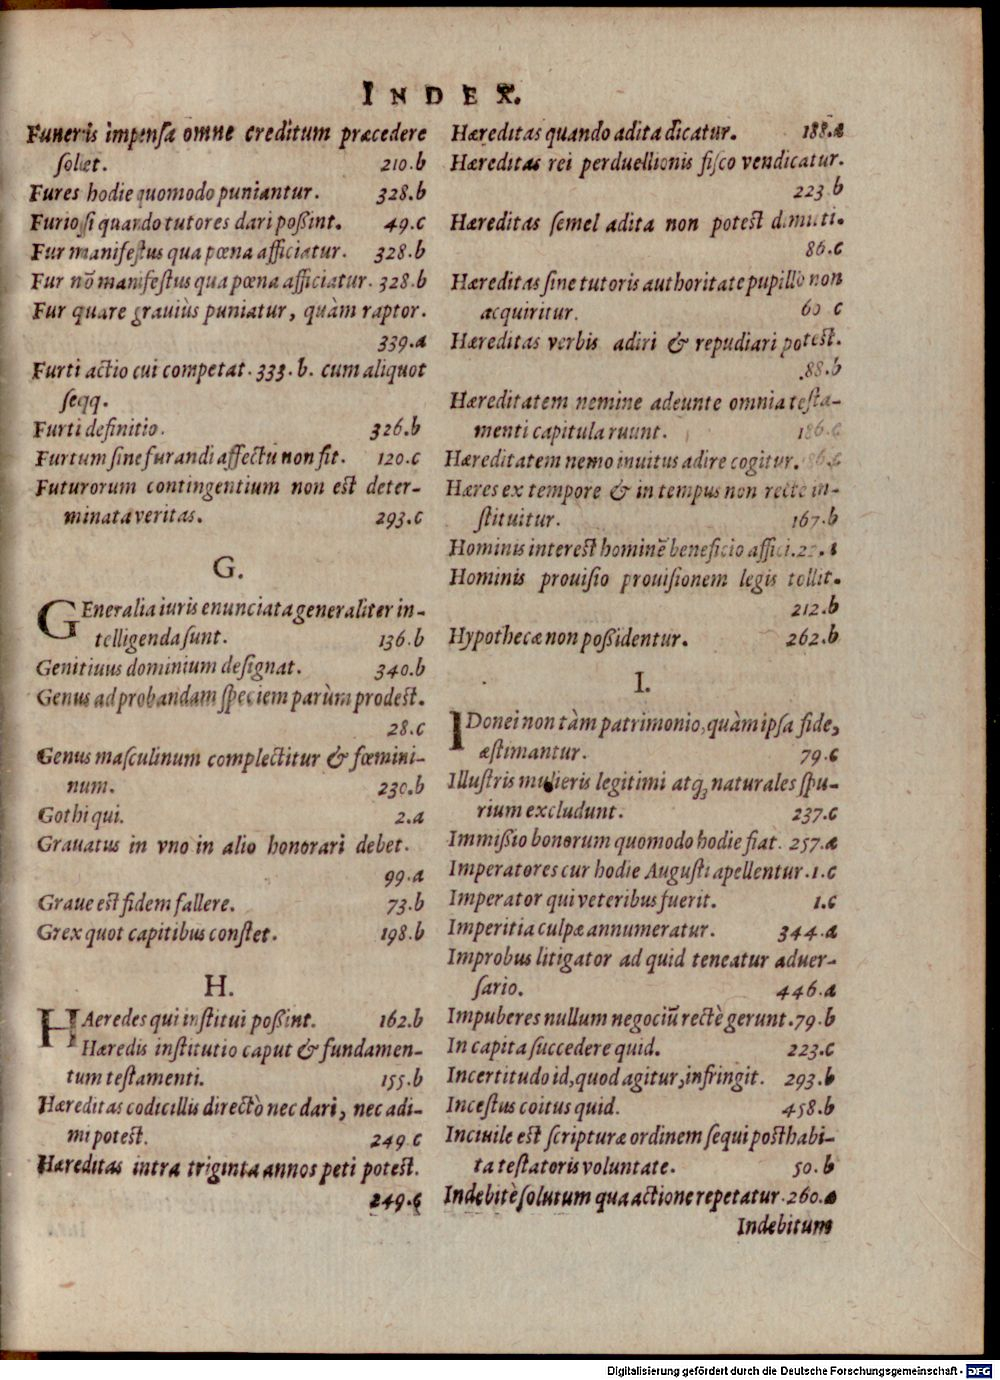 INDEX.
Funeris impensa omne creditum præcedere
solet. 210.b
Fures hodie quomodo puniantur. 328.b
Furiosi quando tutores dari poßint. 49.c
Fur manifestus qua pœna afficiatur. 328.b
Fur nō manifestus qua pœna afficiatur. 328.b
Fur quare grauiùs puniatur, quàm raptor.
339.a
Furti actio cui competat. 333. b. cum aliquot
seqq.
Furti definitio. 326.b
Furtum sine furandi affectu non fit. 120.c
Futurorum contingentium non est deter-
minata veritas. 293.c
G.
GEneralia iuris enunciata generaliter in-
telligenda sunt. 136.b
Genitiuus dominium designat. 340.b
Genus ad probandam speciem parùm prodest.
28.c
Genus masculinum complectitur & fœmini-
num. 230.b
Gothi qui. 2.a
Grauatus in vno in alio honorari debet.
99.a
Graue est fidem fallere. 73.b
Grex quot capitibus constet. 198.b
H.
HAeredes qui institui poßint. 162.b
Hæredis institutio caput & fundamen-
tum testamenti. 155.b
Hæreditas codicillis directò nec dari, nec adi-
mi potest. 249.c
Hæreditas intra triginta annos peti potest.
249.c
Hæreditas quando adita dicatur. 188.a
Hæreditas rei perduellionis fisco vendicatur.
223.b
Hæreditas semel adita non potest dimitti.
86.c
Hæreditas sine tutoris authoritate pupillo non
acquiritur. 60 c
Hæreditas verbis adiri & repudiari potest.
88.b
Hæreditatem nemine adeunte omnia testa-
menti capitula ruunt. 186.c
Hæreditatem nemo inuitus adire cogitur.
Hæres ex tempore & in tempus non rectè in-
stituitur. 167.b
Hominis interest hominē beneficio affici.
Hominis prouisio prouisionem legis tollit.
212.b
Hypothecæ non poßidentur. 262.b
I.
IDonei non tàm patrimonio, quàm ipsa fide,
æstimantur. 79.c
Illustris mulieris legitimi atq; naturales spu-
rium excludunt. 237.c
Immißio bonorum quomodo hodie fiat. 257.a
Imperatores cur hodie Augusti apellentur. 1.c
Imperator qui veteribus fuerit. 1.c
Imperitia culpæ annumeratur. 344.a
Improbus litigator ad quid teneatur aduer-
sario. 446.a
Impuberes nullum negociũ rectè gerunt. 79.b
In capita succedere quid. 223.c
Incertitudo id, quod agitur, infringit. 293.b
Incestus coitus quid. 458.b
Inciuile est scripturæ ordinem sequi posthabi-
ta testatoris voluntate. 50.b
Indebitè solutum qua actione repetatur. 260.a
Indebitum
Digitalisierung gefördert durch die Deutsche Forschungsgemeinschaft - DFG